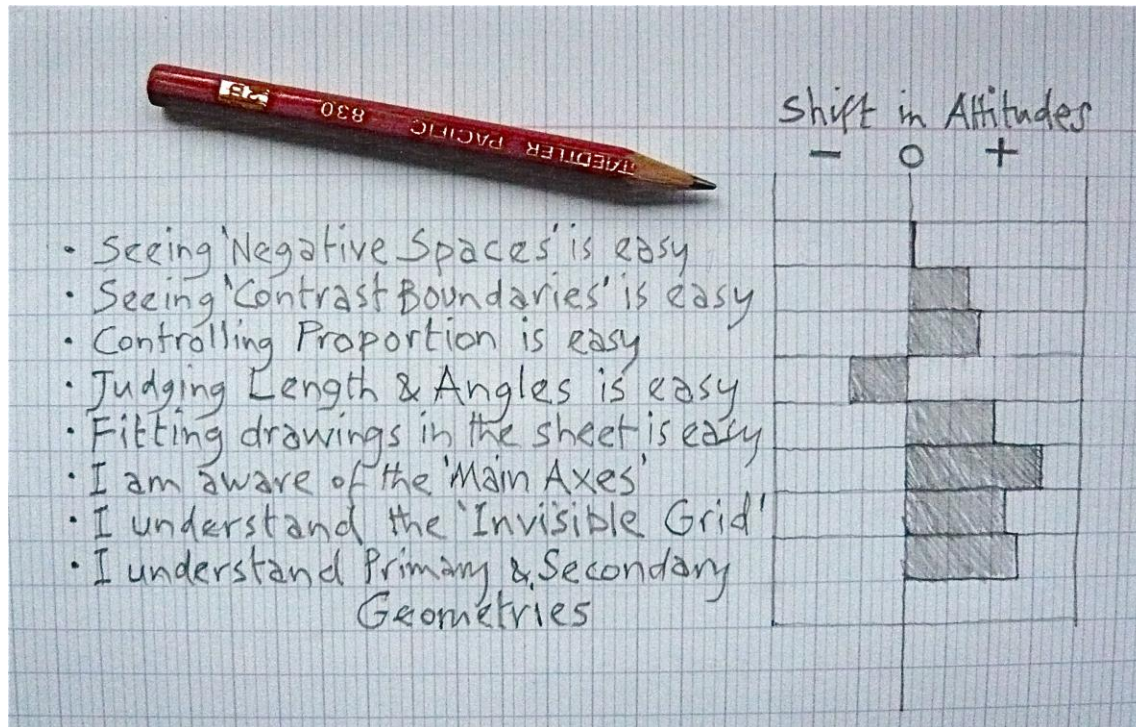 2B 830 PACIFIC TAEDTLER
Shift in Attitudes
− 0 +
• Seeing 'Negative Spaces' is easy
• Seeing 'Contrast Boundaries' is easy
• Controlling Proportion is easy
• Judging Length & Angles is easy
• Fitting drawings in the sheet is easy
• I am aware of the 'Main Axes'
• I understand the 'Invisible Grid'
• I understand Primary & Secondary
Geometries